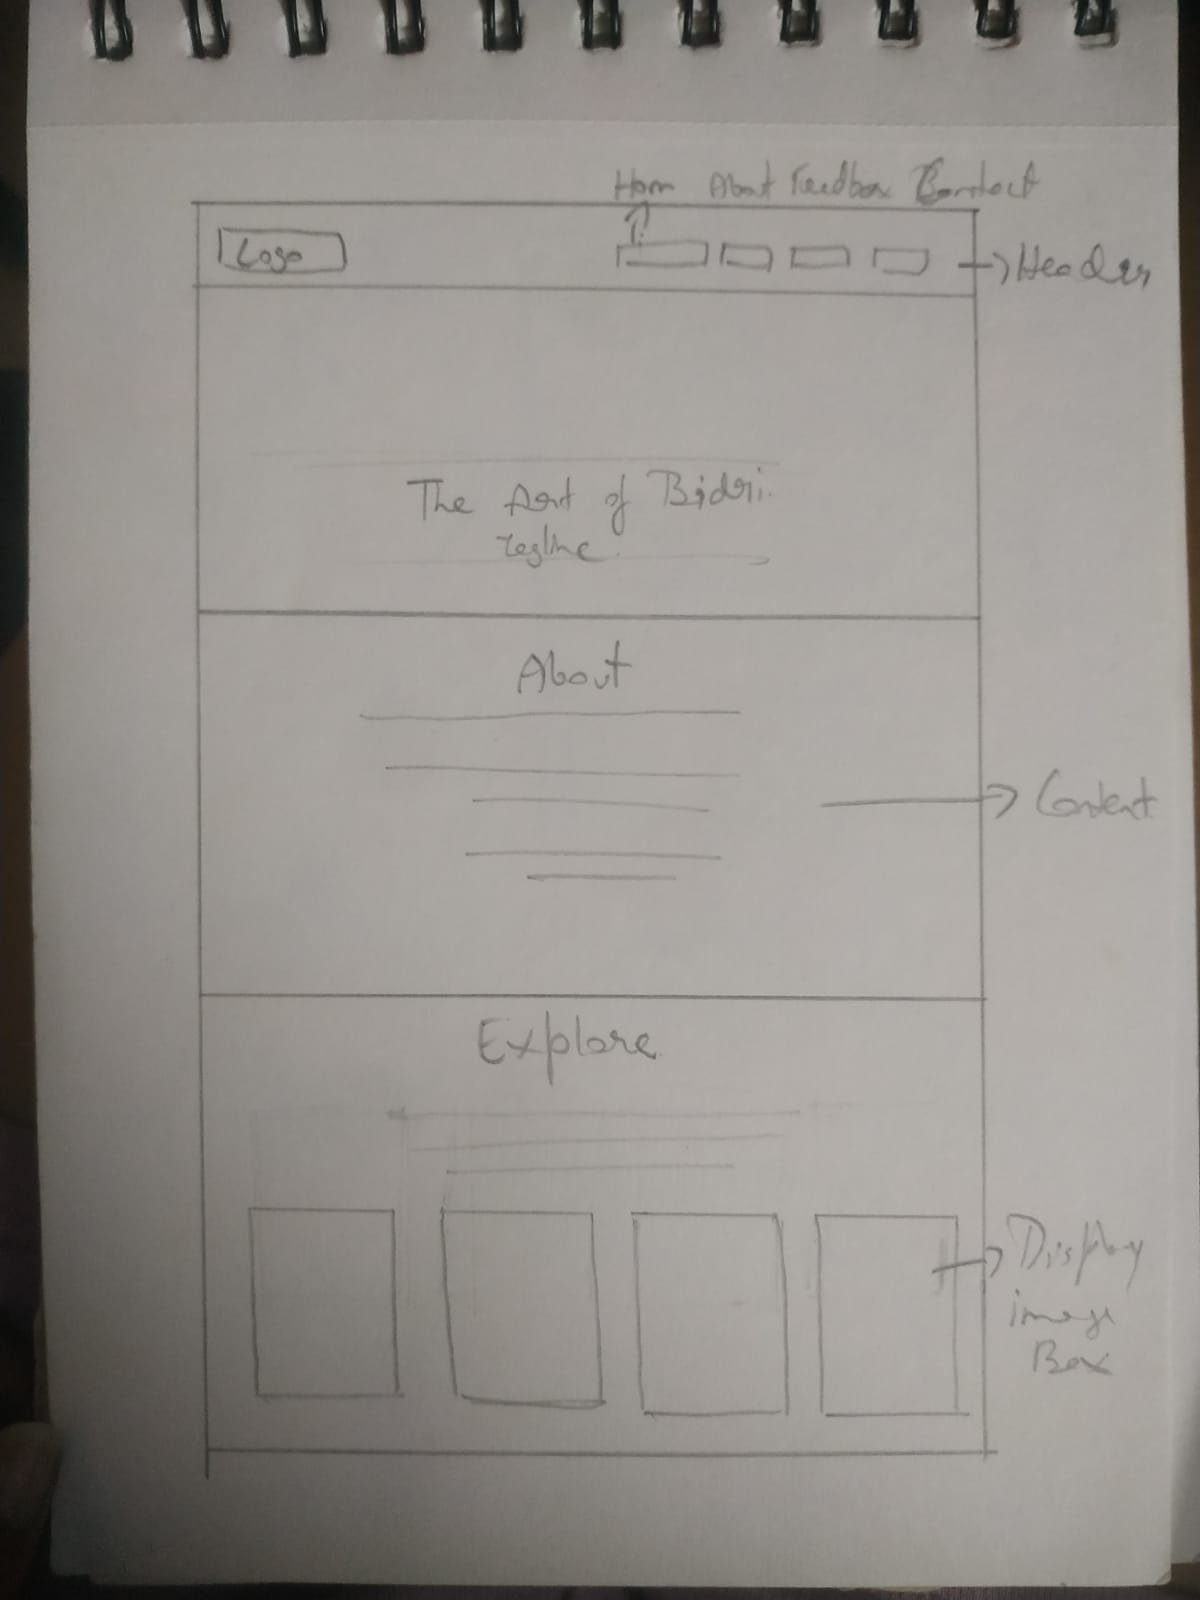 Hom About Feedbox Contact
Logo
Header
The Art of Bidri.
tagline
About
Content
Explore
Display
image
Box